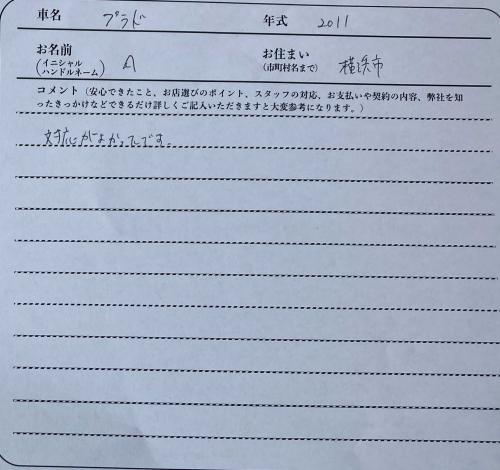 車名 プラド 年式 2011
お名前 (イニシャル ハンドルネーム) A お住まい (市町村名まで) 横浜市
コメント（安心できたこと、お店選びのポイント、スタッフの対応、お支払いや契約の内容、弊社を知
ったきっかけなどできるだけ詳しくご記入いただきますと大変参考になります。）
対応がよかったです。